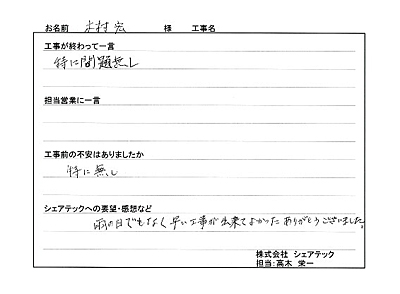 お名前 木村 宏 様 工事名
工事が終わって一言
特に問題無し
担当営業に一言
工事前の不安はありましたか
特に無し
シェアテックへの要望・感想など
雨の日でもなく早い工事が出来てよかったありがとうございました。
株式会社 シェアテック
担当:高木 栄一